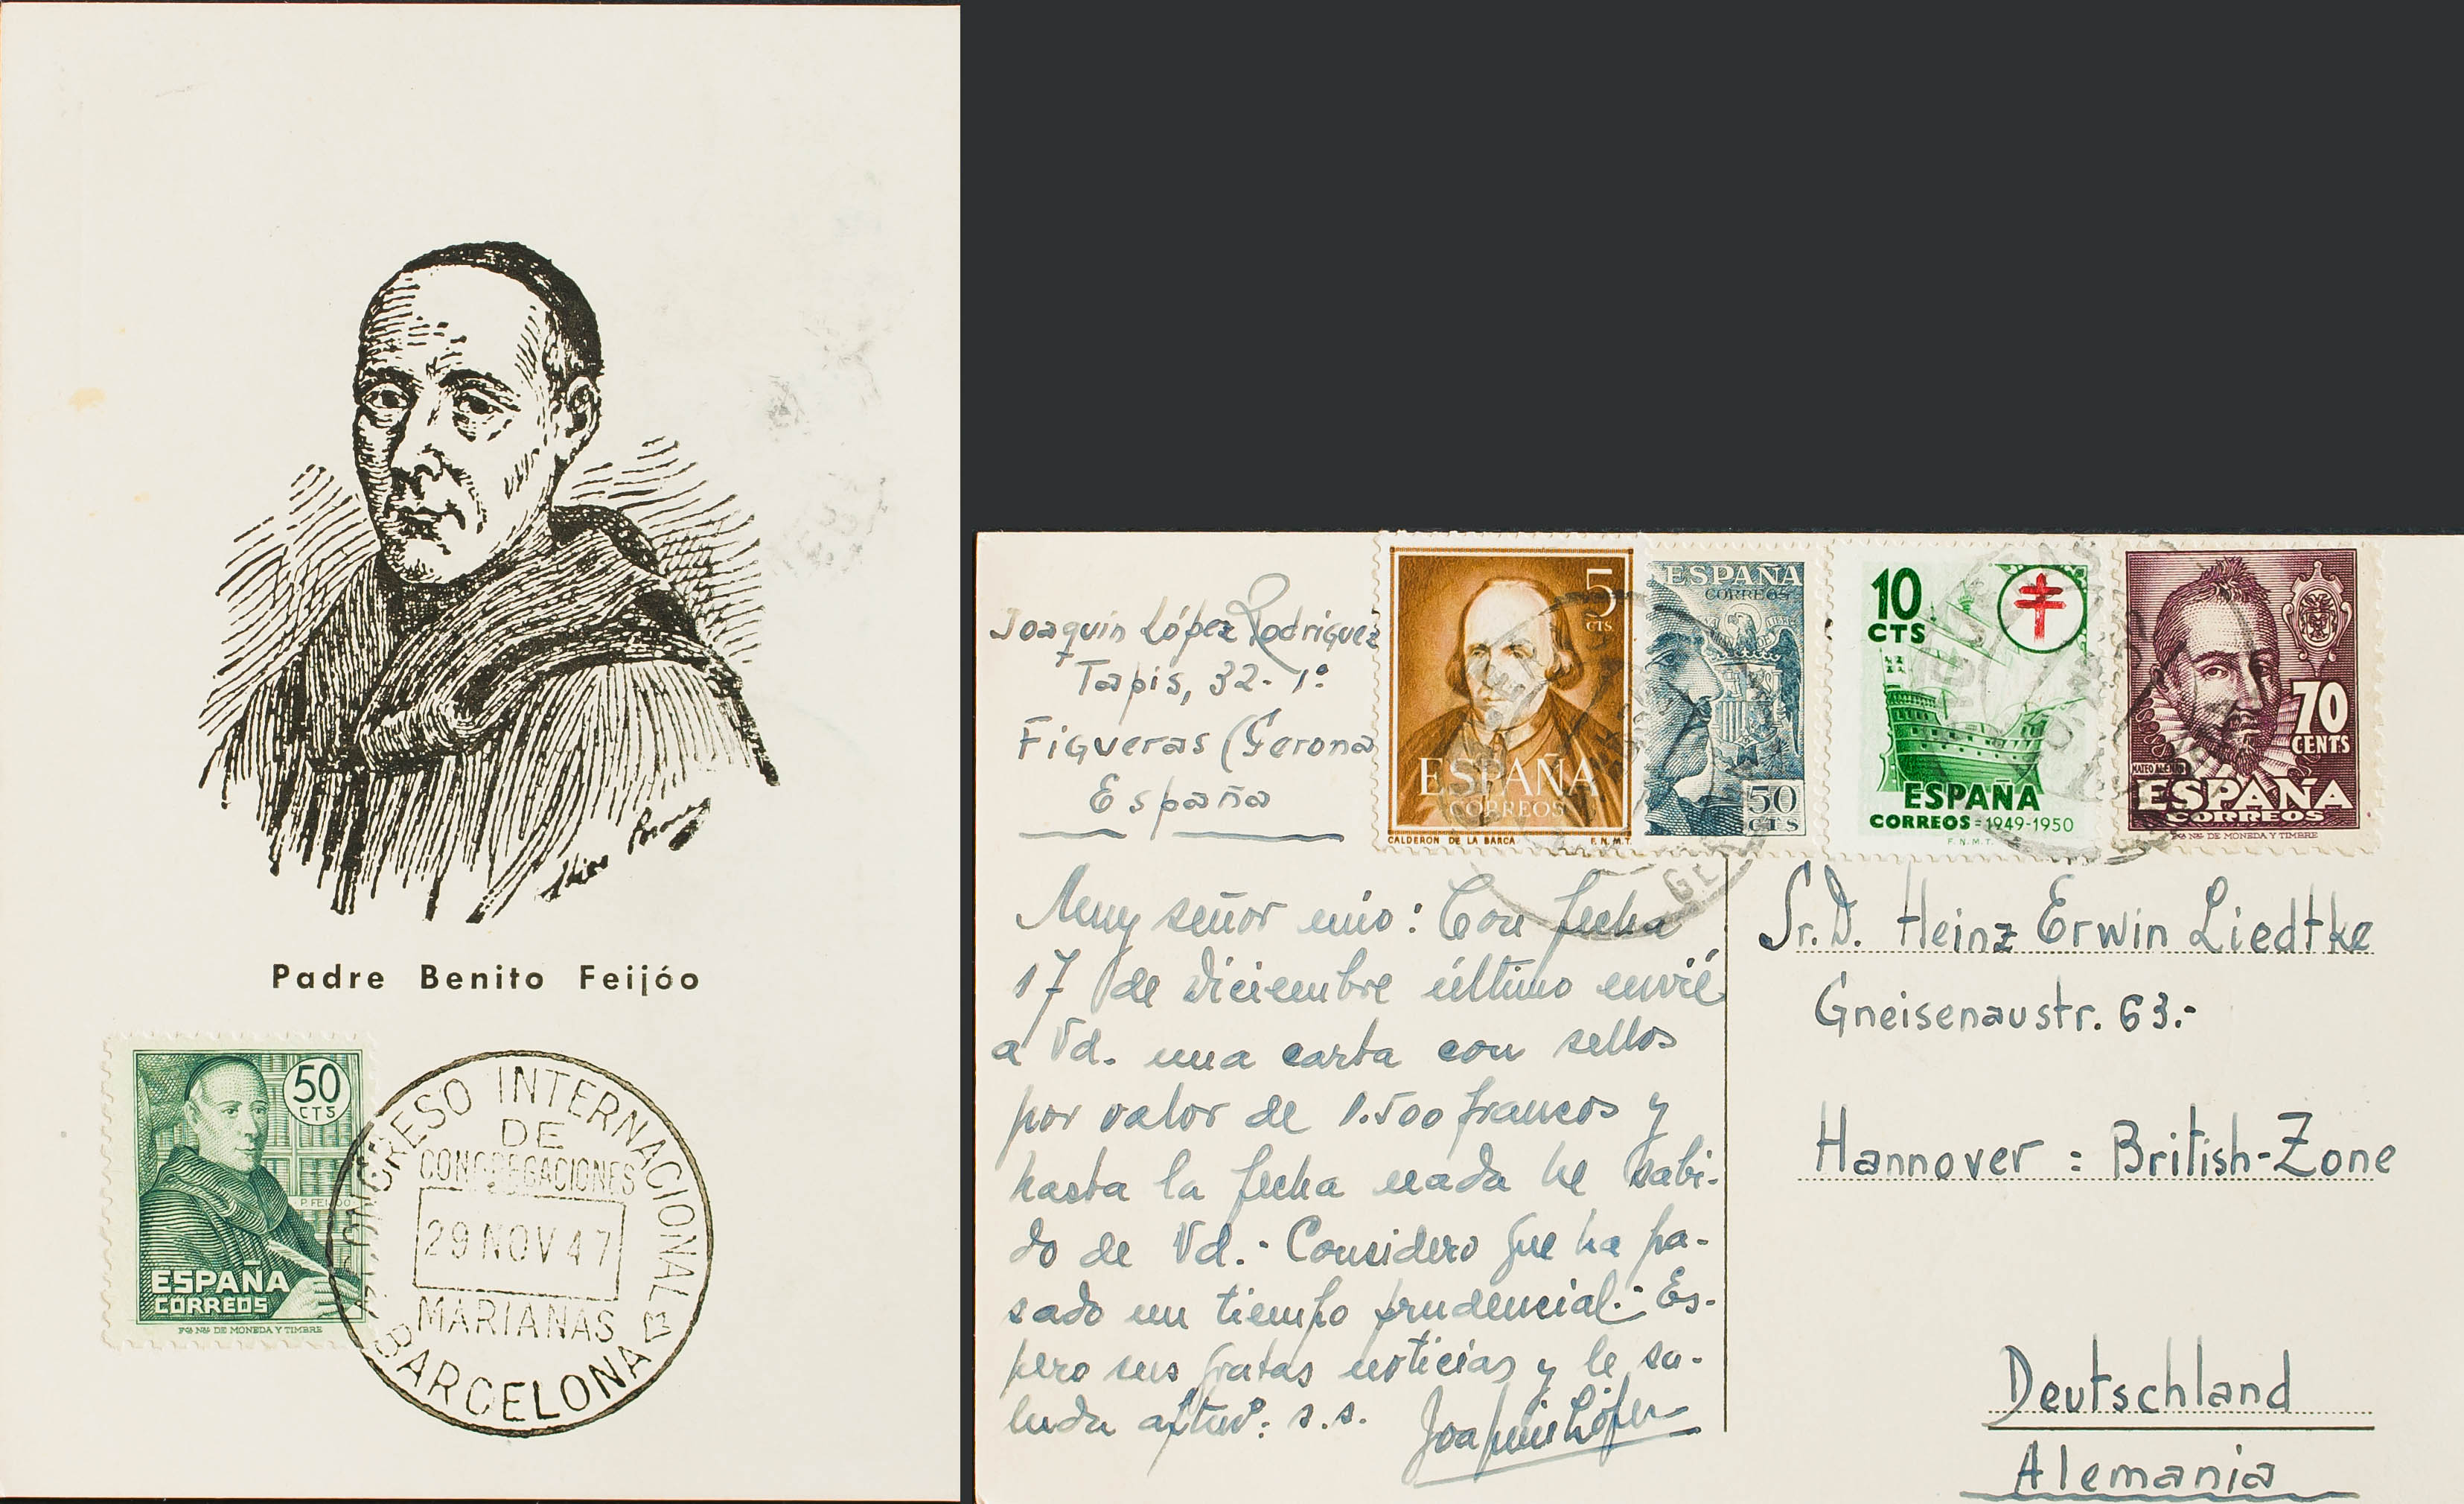 Padre Benito Feijóo
50
CTS
P. FEIJOO
ESPAÑA
CORREOS
Fca Nal DE MONEDA Y TIMBRE
CONGRESO INTERNACIONAL
DE
CONGREGACIONES
29 NOV 47
MARIANAS
BARCELONA
Joaquín López Rodríguez
Tapis, 32- 1º
Figueras (Gerona
España
5
CTS
ESPAÑA
CORREOS
CALDERON DE LA BARCA F.N.M.T.
ESPAÑA
CORREOS
50
CTS
10
CTS
ESPAÑA
CORREOS=1949-1950
F.N.M.T.
70
CENTS
MATEO ALEMAN
ESPAÑA
CORREOS
Fca Nal DE MONEDA Y TIMBRE
Muy señor mio: Con fecha
17 de diciembre último envié
a Vd. una carta con sellos
por valor de 1.500 francos y
hasta la fecha nada he sabi-
do de Vd.- Considero que ha pa-
sado un tiempo prudencial.- Es-
pero sus gratas noticias y le sa-
luda afmo. s.s.
Joaquín López
Sr. D. Heinz Erwin Liedtke
Gneisenaustr. 63.-
Hannover = British-Zone
Deutschland
Alemania